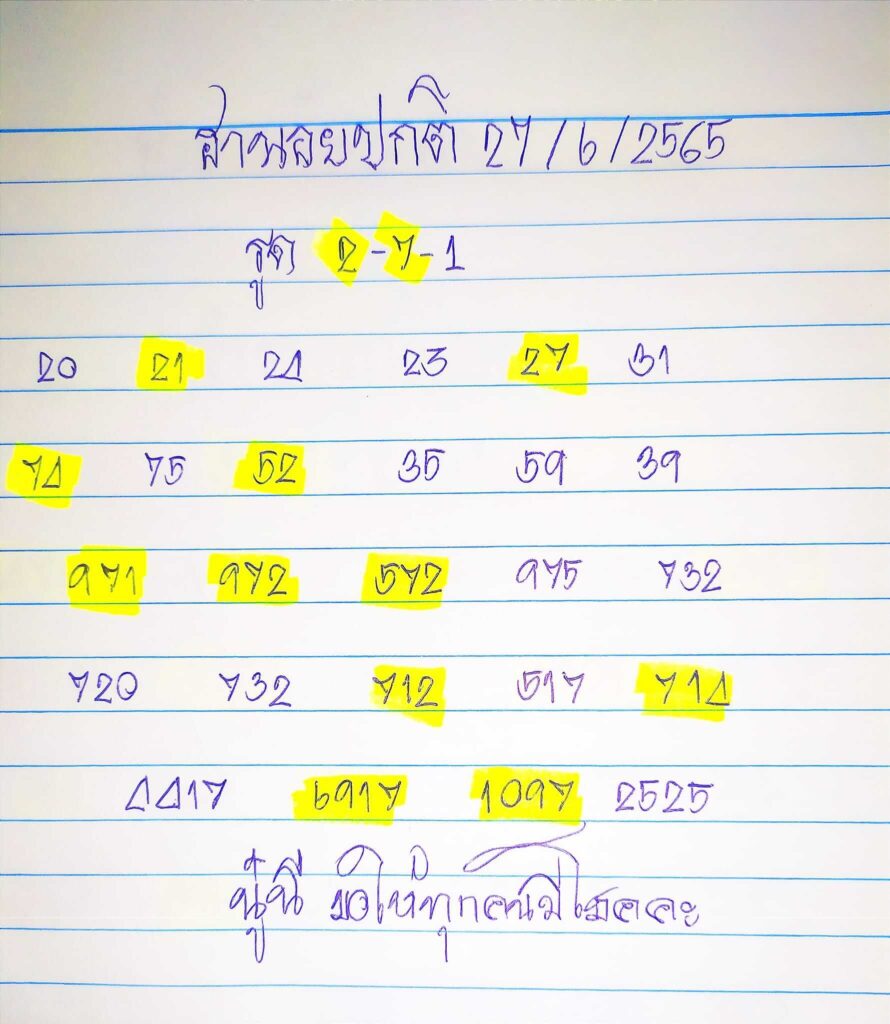 ฮานอยปกติ 27/6/2565
รูด 2-7-1
20 21 24 23 27 31
74 75 52 35 59 39
971 972 572 975 732
720 732 712 517 714
4417 6917 1097 2525
ขอให้ทุกคนมีโชคคะ